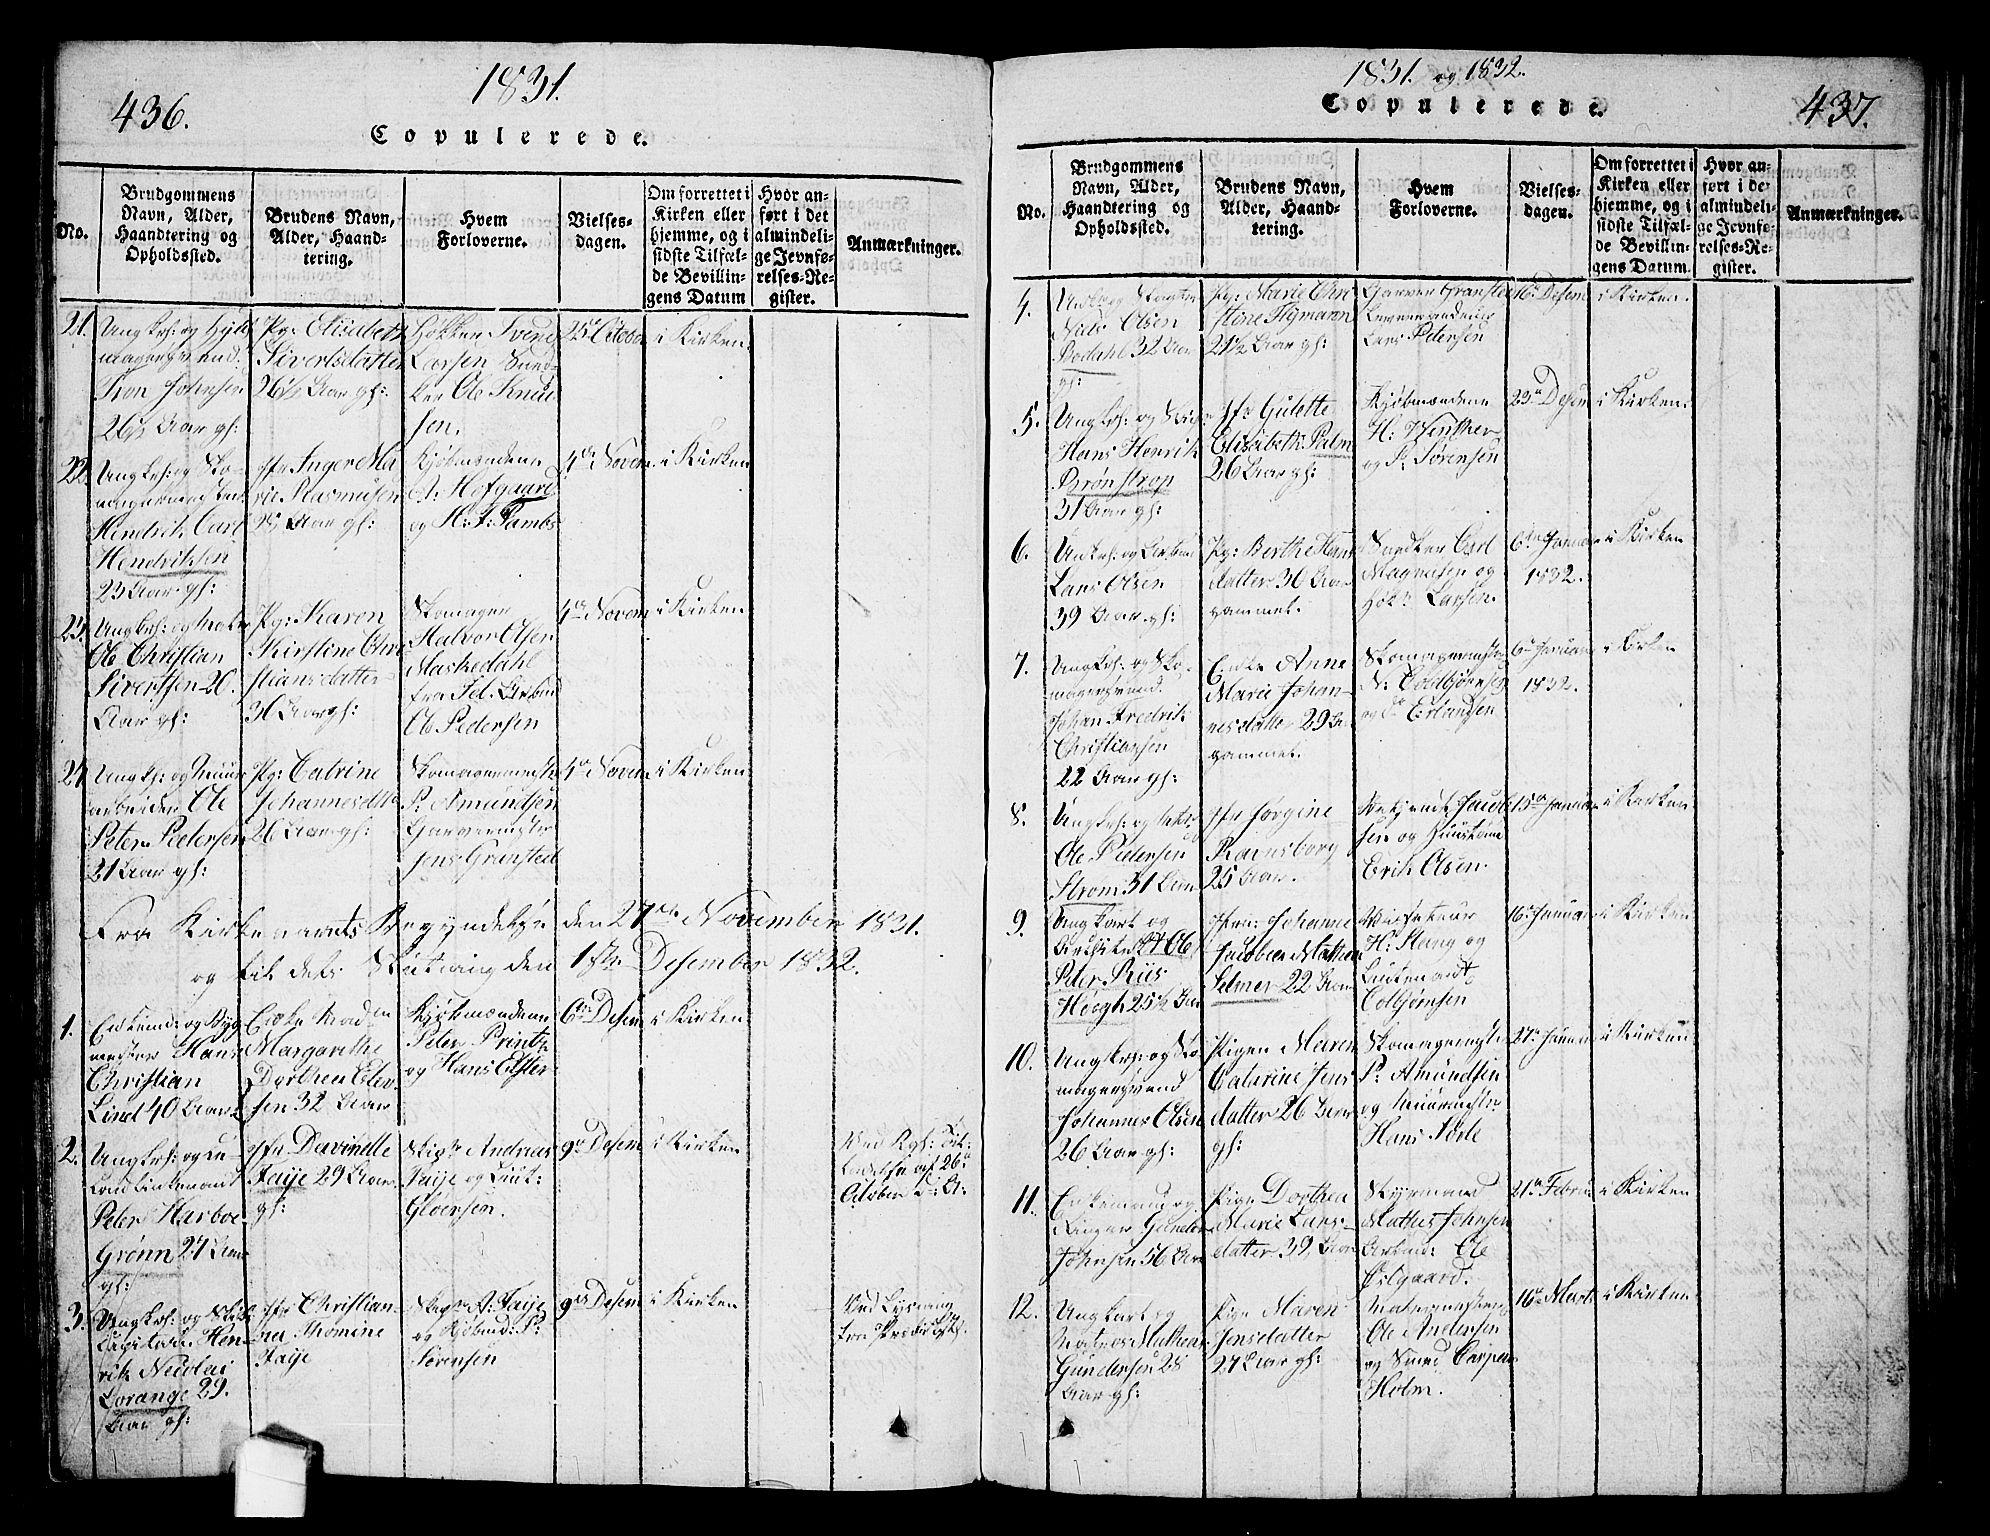 436.
1831.
Copulerede.
No.
Brudgommens
Navn, Alder,
Haandtering og
Opholdssted.
Brudens Navn,
Alder, Haand-
tering.
Hvem
Forloverne.
Vielses-
dagen.
Om forrettet i
Kirken eller
hjemme, og i
sidste Tilfæl-
de Bevillin-
gens Datum
Hvor an-
ført i det
almindeli-
ge Jevnfø-
relses-Re-
gister.
Anmærkninger.
21.
Ungkrl: og
Iron Johnsen
26½ Aar gl:
Pg: Elisabeth
Sivertsdatter
26½ Aar gl:
Svend
Larsen
Ole Knud
sen.
25 October
i Kirken.
22.
Ungkrl: og Sko-
magermester
Hendrik Carl
Hendriksen
23 Aar gl:
Jfr Inger Ma
rie Rasmusen
25 Aar gl:
Kjøbmændene
A: Hofgaard
og H: J: Tambs
4de Novem
i Kirken
23.
Ungkrl: og
Ole Christian
Sivertsen 20.
Aar gl:
Pg: Karen
Kirstine Chri
stiansdatter
30 Aar gl:
Skomager
Halvor Olsen
Maskedahl
Ole Pedersen
4de Novem
i Kirken
24
Ungkrl: og Muur
arbeider Ole
Peter Pedersen
21 Aar gl:
Pg: Catrine
Johannesdtr
26 Aar gl:
Skomagermester
P: Amundsen
Garvermester
Jens Gransted
4de Novem
i Kirken
Fra Kirkeaarets Begyndelse den 27de November 1831.
og til dets Slutning den 1ste Desember 1832.
1.
Enkemd: og Byg
mester Hans
Christian
Lind 40 Aar
Enke Mad:
Margarethe
Dorthea Eler
sen 32 Aar
Kjøbmændene
Peter Printz
og Hans Elster
6te Desem
i Kirken
2.
Ungkrl: og
Peter Harboe
Grønn 27 Aar
gl:
Jfr Davindle
Faije 29 Aar
gl:
Skip: Andreas
Faije og Lieut:
Gloersen.
9de Desem
i Kirken
Ved Kgl: Til-
ladelse af 26de
October d: A:
3.
Ungkrl: og
Capitain Hen-
rik Nicolai
Lorange 29.
Aar gl:
Jfr Christian-
ne Thomine
Faije
A: Faije
og Kjøbmd: P:
Sørensen
9de Desem
i Kirken
Ved Lysning
fra Prædikest:
1831. og 1832.
Copulerede.
437.
No.
Brudgommens
Navn, Alder,
Haandtering og
Opholdssted.
Brudens Navn,
Alder, Haand-
tering.
Hvem
Forloverne.
Vielses-
dagen.
Om forrettet i
Kirken eller
hjemme, og i
sidste Tilfæl-
de Bevillin-
gens Datum
Hvor an-
ført i de
almindeli-
ge Jevnfø-
relses-Re-
gister.
Anmærkninger.
4.
Niels Olsen
Bodahl 32 Aar
gl:
Pg: Marie Chri
stine Hymann
21½ Aar gl:
Garver Gransted
Lars Petersen
16 Desem
i Kirken.
5.
Ungkrl: og
Hans Henrik
Brønstrop
31 Aar gl:
Jfr Gulette
Elisabeth Palm
26 Aar gl:
Kjøbmændene
H: Winther
og P: Sørensen
23de Desem
i Kirken.
6.
Ungkrl: og Arbmd
Lars Olsen
39 Aar gl:
Pg: Berthe Hans
datter 30 Aar
gammel.
Snedker Carl
Magnusen og
Larsen.
6te Januar
1832.
i Kirken
7.
Ungkrl: og Sko-
magersvend
Johan Fredrik
Christiansen
22 Aar gl:
Enke Anne
Marie Johan-
nesdatter 29 Aar
gammel.
Skomagermester
N: Coldbjørnsen
og C: Erlandsen
6te Januar
1832.
i Kirken
8.
Ungkrl: og
Ole Petersen
Strøm 31 Aar
Jfr Jørgine
Ravnsborg
25 Aar.
Jacob
sen og
Erik Olsen.
15de Januar
i Kirken
9.
Ungkarl og
Ole
Peter Riis
Høegh 25½ Aar
Jfru: Johanne
Jacobine Mathea
Selmer 22 Aar
H: Stang og
Lieutenant
Coldbjørnsen
16 Januar
i Kirken
10.
Ungkrl: og Sko
magersvend
Johannes Olsen
26 Aar gl:
Pigen Maren
Catarine Jens
datter 26 Aar
gl:
Skomagermester
P: Amundsen
og Muurmester
Hans Sørle
27de Januar
i Kirken
11.
Enkemand og
Ringer Gunder
Johnsen 56 Aar
Pige Dorthea
Marie Lars-
datter 39 Aar
Styrmand
Mathis Johnsen
Arbmd: Ole
Østgaard.
21de Februar
i Kirken
12.
Ungkarl og
Matros Mathias
Gundersen 28
Aar gl:
Pige Maren
Jensdatter
27 Aar gl:
Ole Andersen
og Smed Casper
Holm.
16de Marts
i Kirken